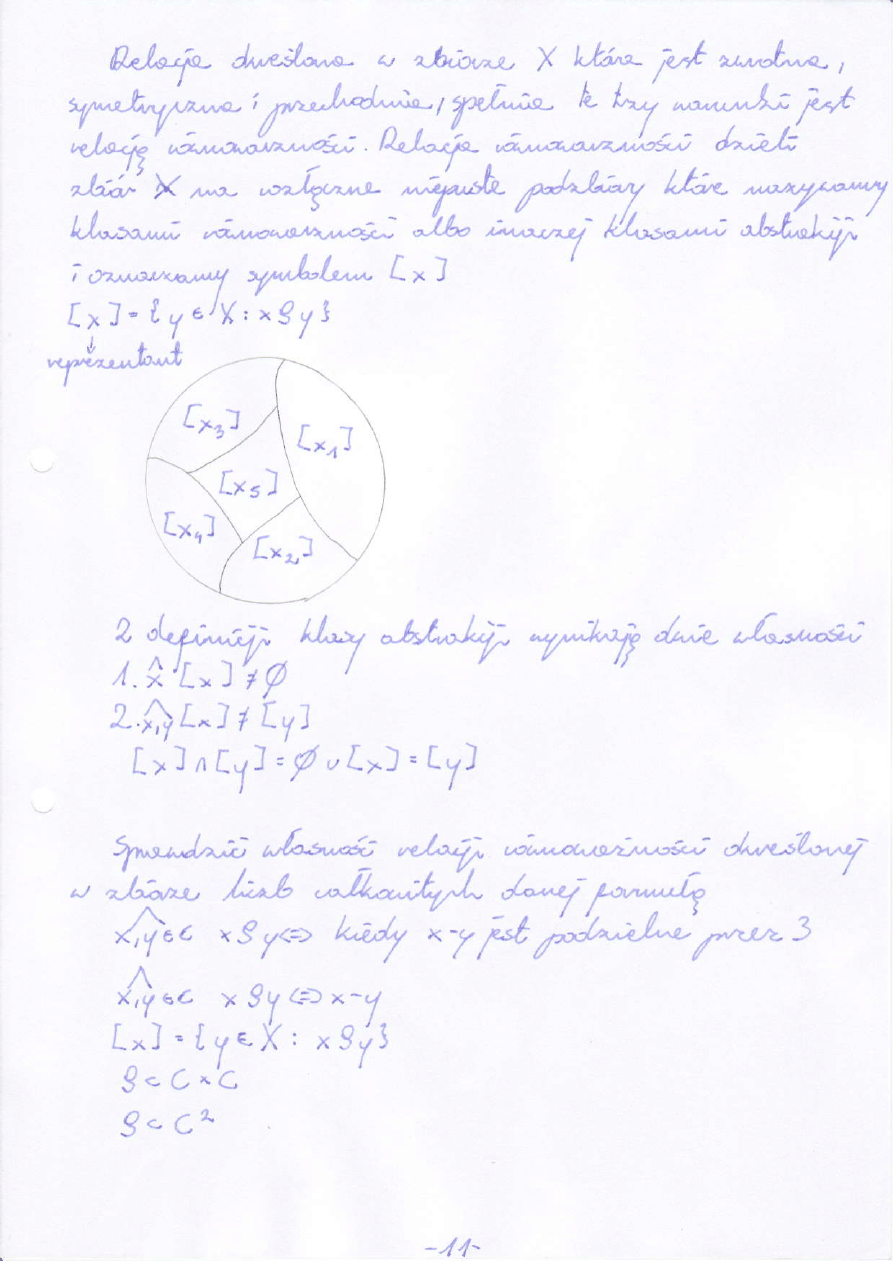 Relacja określona w zbiorze X która jest zwrotna,
symetryczna i przechodnia, spełnia te trzy warunki jest
relacją równoważności. Relacja równoważności dzieli
zbiór X na rozłączne niepuste podzbiory które nazywamy
klasami równoważności albo inaczej klasami abstrakcji
i oznaczamy symbolem [x]
[x] = {y ∈ X : x ρ y}
↓
reprezentant
[x₃]
[x₁]
[x₅]
[x₄]
[x₂]
Z definicji klasy abstrakcji wynikają dwie własności
1. ⋀x [x] ≠ ∅
2. ⋀x,y [x] ≠ [y]
[x] ∩ [y] = ∅ ∪ [x] = [y]
Sprawdzić własność relacji równoważności określonej
w zbiorze liczb całkowitych danej formułą
⋀x,y∈C x ρ y <=> kiedy x-y jest podzielne przez 3
⋀x,y∈C x ρ y <=> x-y
[x] = {y ∈ X : x ρ y}
ρ ⊂ C × C
ρ ⊂ C²
-11-